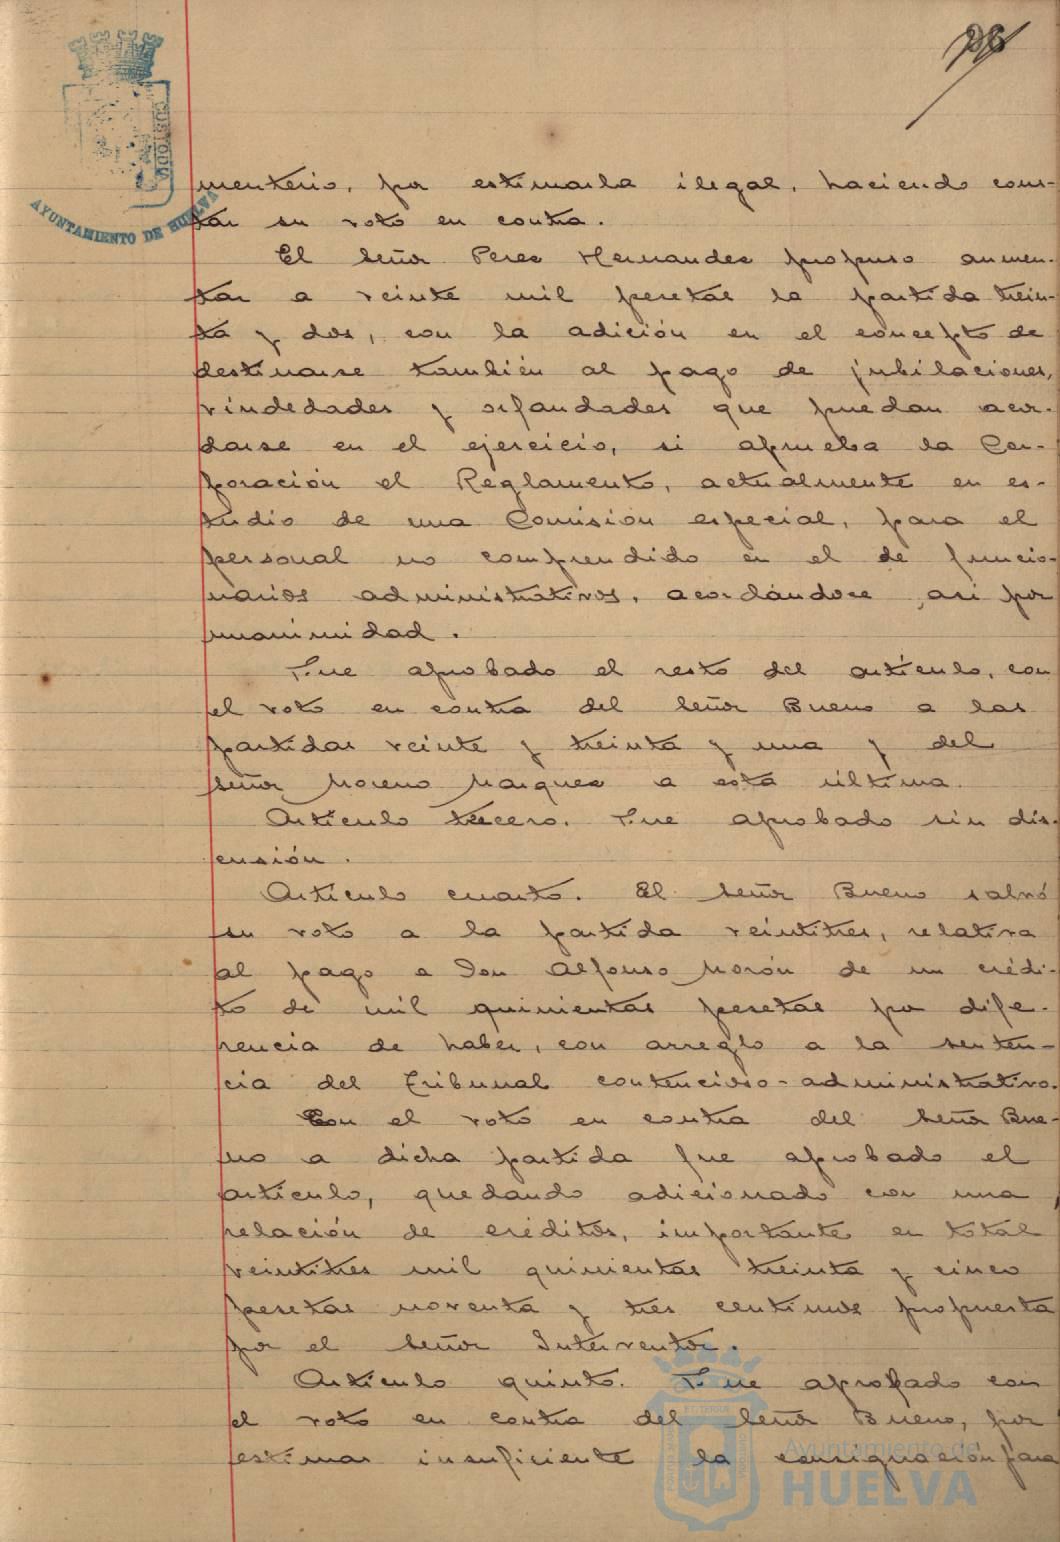 menterio, por estimarla ilegal, haciendo cons-
tar su voto en contra.
El Señor Perez Hernandez propuso aumen-
tar a veinte mil pesetas la partida trein-
ta y dos, con la adición en el concepto de
destinarse también al pago de jubilaciones,
viudedades y orfandades que puedan acor-
darse en el ejercicio, si aprueba la Cor-
poración el Reglamento, actualmente en es-
tudio de una Comisión especial, para el
personal no comprendido en el de funcio-
narios administrativos, acordándose así por
unanimidad.
Fue aprobado el resto del artículo, con
el voto en contra del Señor Bueno a las
partidas veinte y treinta y una y del
Señor Moreno Marquez a esta última.
Artículo tercero. Fue aprobado sin dis-
ensión.
Artículo cuarto. El Señor Bueno salvó
su voto a la partida veintitres, relativa
al pago a Don Alfonso Morón de un crédi-
to de mil quinientas pesetas por dife-
rencia de haber, con arreglo a la senten-
cia del Tribunal contencioso-administrativo.
Con el voto en contra del Señor Bue-
no a dicha partida fue aprobado el
artículo, quedando adicionado con una
relación de créditos, importante en total
veintitres mil quinientas treinta y cinco
pesetas noventa y tres centimos propuesta
por el Señor Interventor.
Artículo quinto. Fue aprobado con
el voto en contra del Señor Bueno, por
estimar insuficiente la consignación para
AYUNTAMIENTO DE HUELVA
Ayuntamiento de
HUELVA